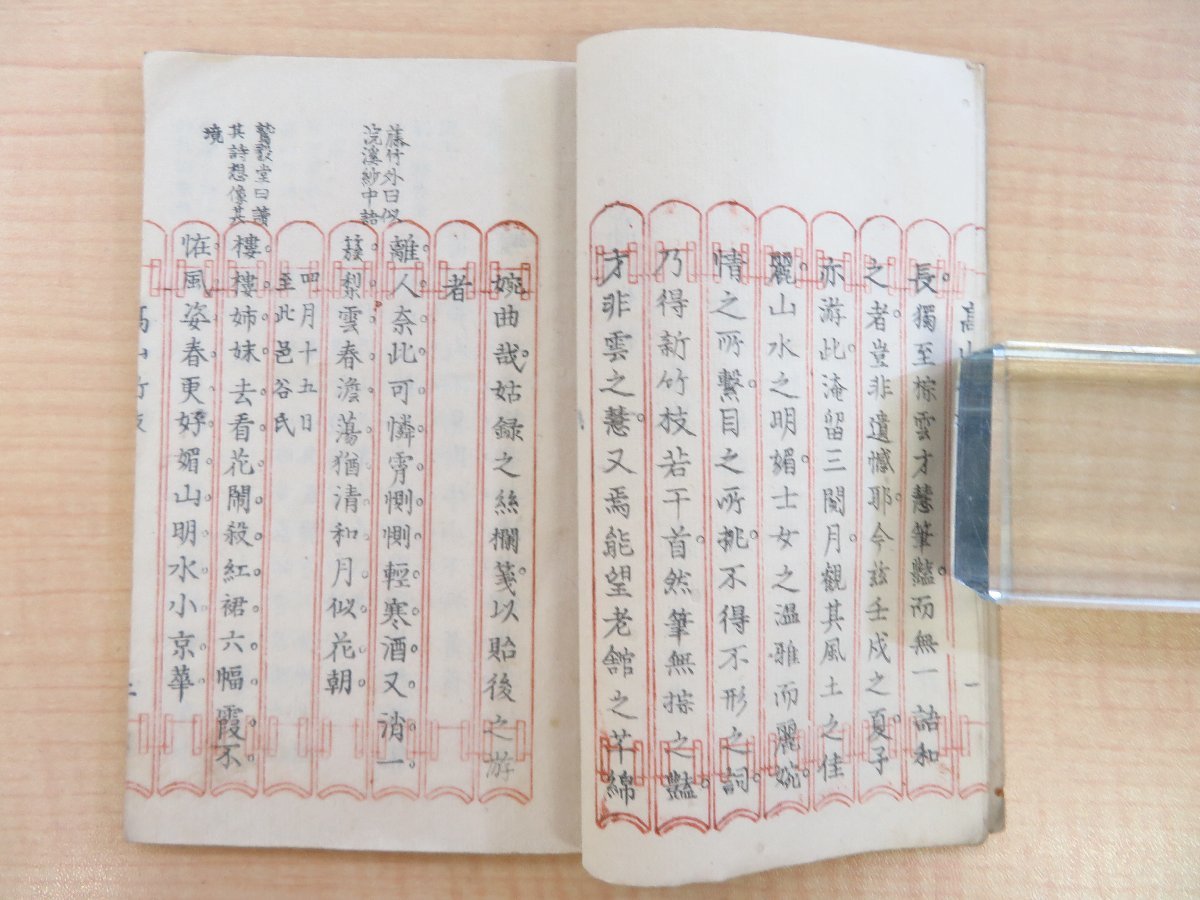 長。獨至棕雲才慧筆豔。而無一語和
之者。豈非遺憾耶。今玆壬戌之夏。予
亦游此。淹留三閱月。觀其風土之佳
麗。山水之明媚。士女之溫雅而麗婉。
情之所繫。目之所挑。不得不形之詞。
乃得新竹枝若干首。然筆無棕之豔。
才非雲之慧。又焉能望老館之芊綿
婉曲哉。姑録之絲欄箋。以貽後之游
者
離。人。奈。此。可。憐。霄。惻。惻。輕。寒。酒。又。消。一。
簇。梨。雲。春。澹。蕩。猶。清。和。月。似。花。朝。
四月十五日
至此邑谷氏
樓。樓。姉。妹。去。看。花。閙。殺。紅。裙。六。幅。霞。不。
恠。風。姿。春。更。好。媚。山。明。水。小。京。華
藤竹外曰似
浣溪紗中語
鷲毅堂曰讀
其詩想像其
境
高山竹枝
一